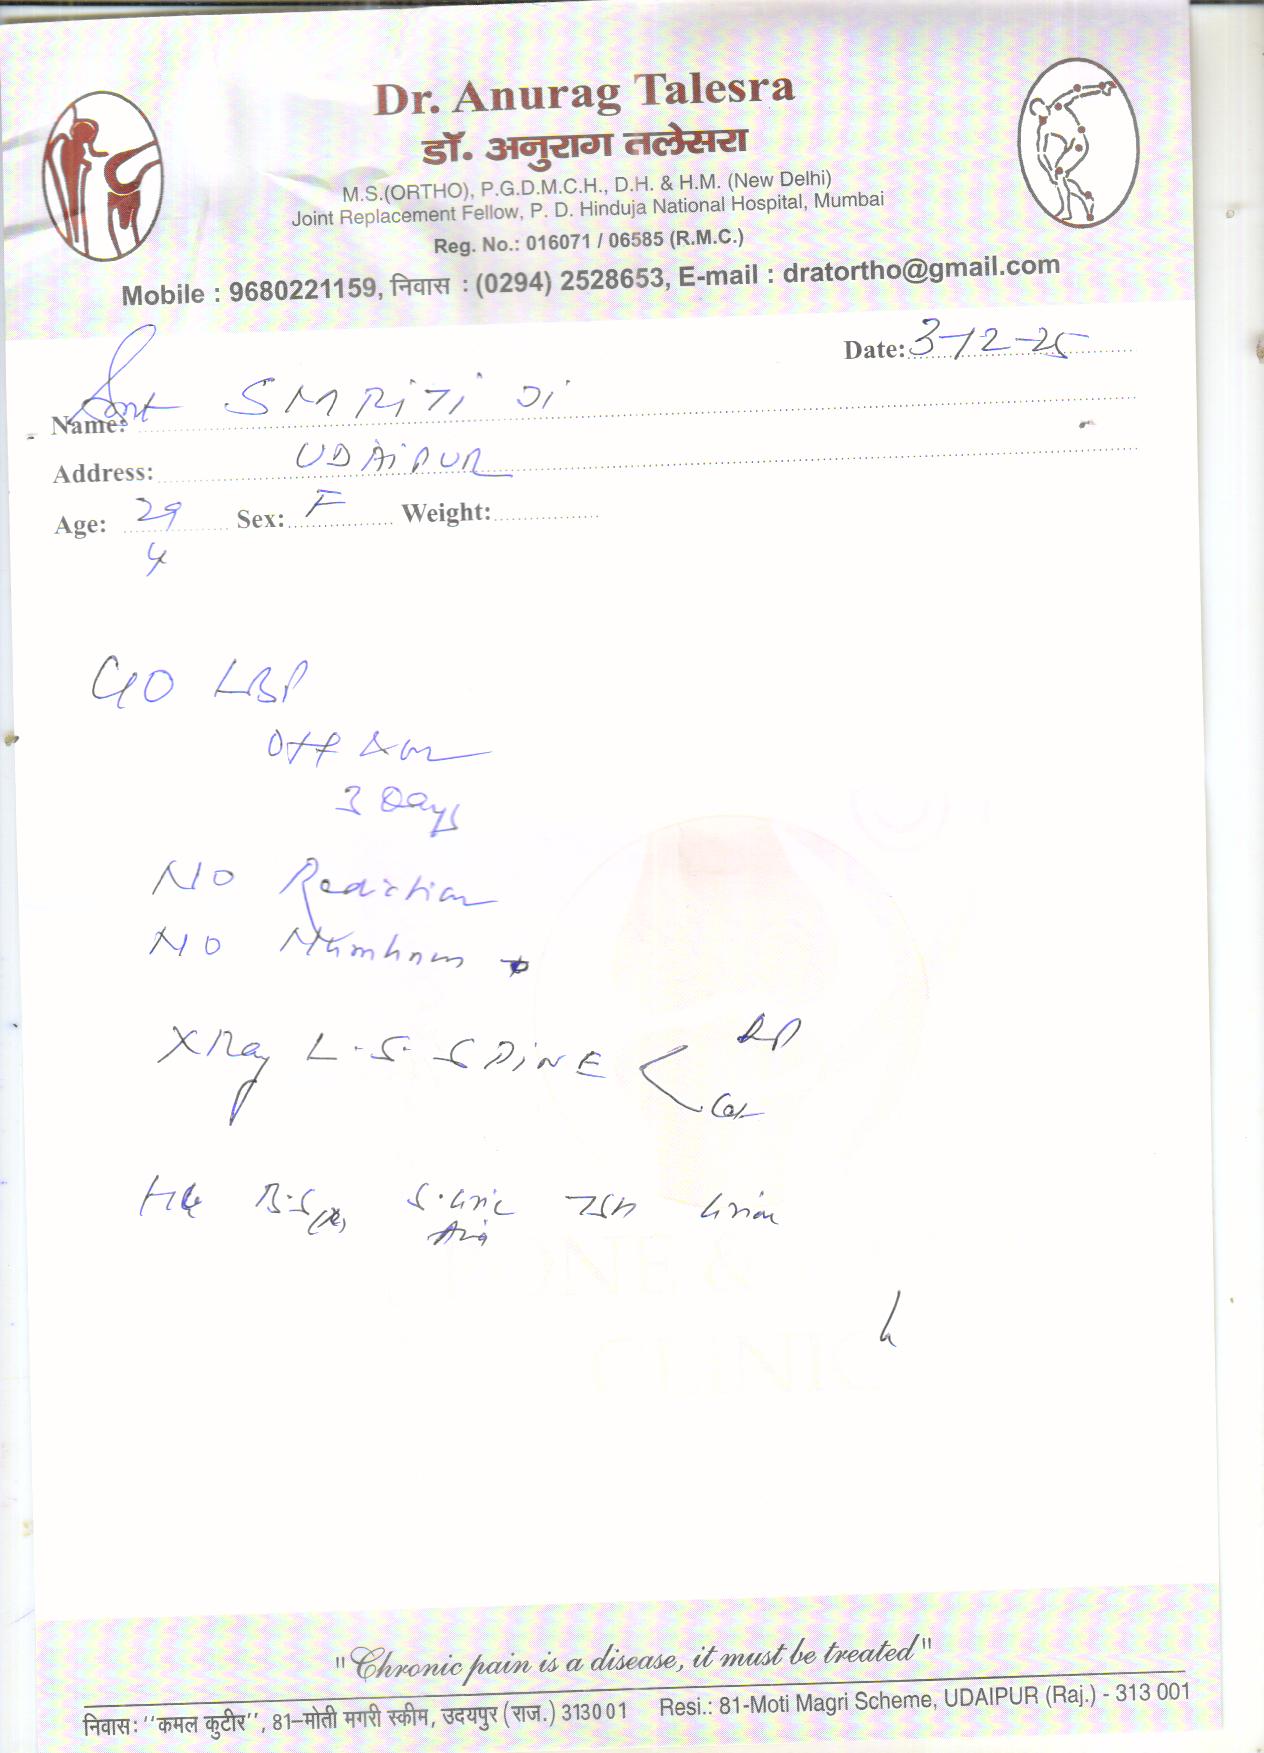 Dr. Anurag Talesra
डॉ. अनुराग तलेसरा
M.S.(ORTHO), P.G.D.M.C.H., D.H. & H.M. (New Delhi)
Joint Replacement Fellow, P. D. Hinduja National Hospital, Mumbai
Reg. No.: 016071 / 06585 (R.M.C.)
Mobile : 9680221159, निवास : (0294) 2528653, E-mail : dratortho@gmail.com
Date: 3-12-25
Name: SMRITI JI
Address: UDAIPUR
Age: 29 Sex: F Weight:
C/O LBP
Off & on
3 Days
NO Radiation
NO Numbness
XRay L.S. SPINE < AP
Lat
B.S(R) S. Uric TSH Urine
Acid
BONE &
CLINIC
"Chronic pain is a disease, it must be treated"
निवास: ''कमल कुटीर'', 81–मोती मगरी स्कीम, उदयपुर (राज.) 313001 Resi.: 81-Moti Magri Scheme, UDAIPUR (Raj.) - 313 001